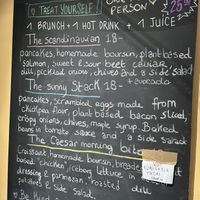 TREAT YOURSELF!
PERSON
25
1 BRUNCH + 1 HOT DRINK + 1 JUICE
The Scandinavian 18-
pancakes, homemade boursin, plant based
salmon, sweet & sour beet caviar
dill, pickled onion, chives and a side salad
The Sunny Stack 18-
+ avocado
pancakes, scrambled eggs made from
chickpea flour, plant based bacon slices,
crispy onions, chives, maple syrup. Baked
beans in tomato sauce and a side salad
The Caesar morning bite
Croissant, homemade boursin, breaded plant
based "chicken", iceberg lettuce in
dressing & parmesan, roasted
& side salad. dill